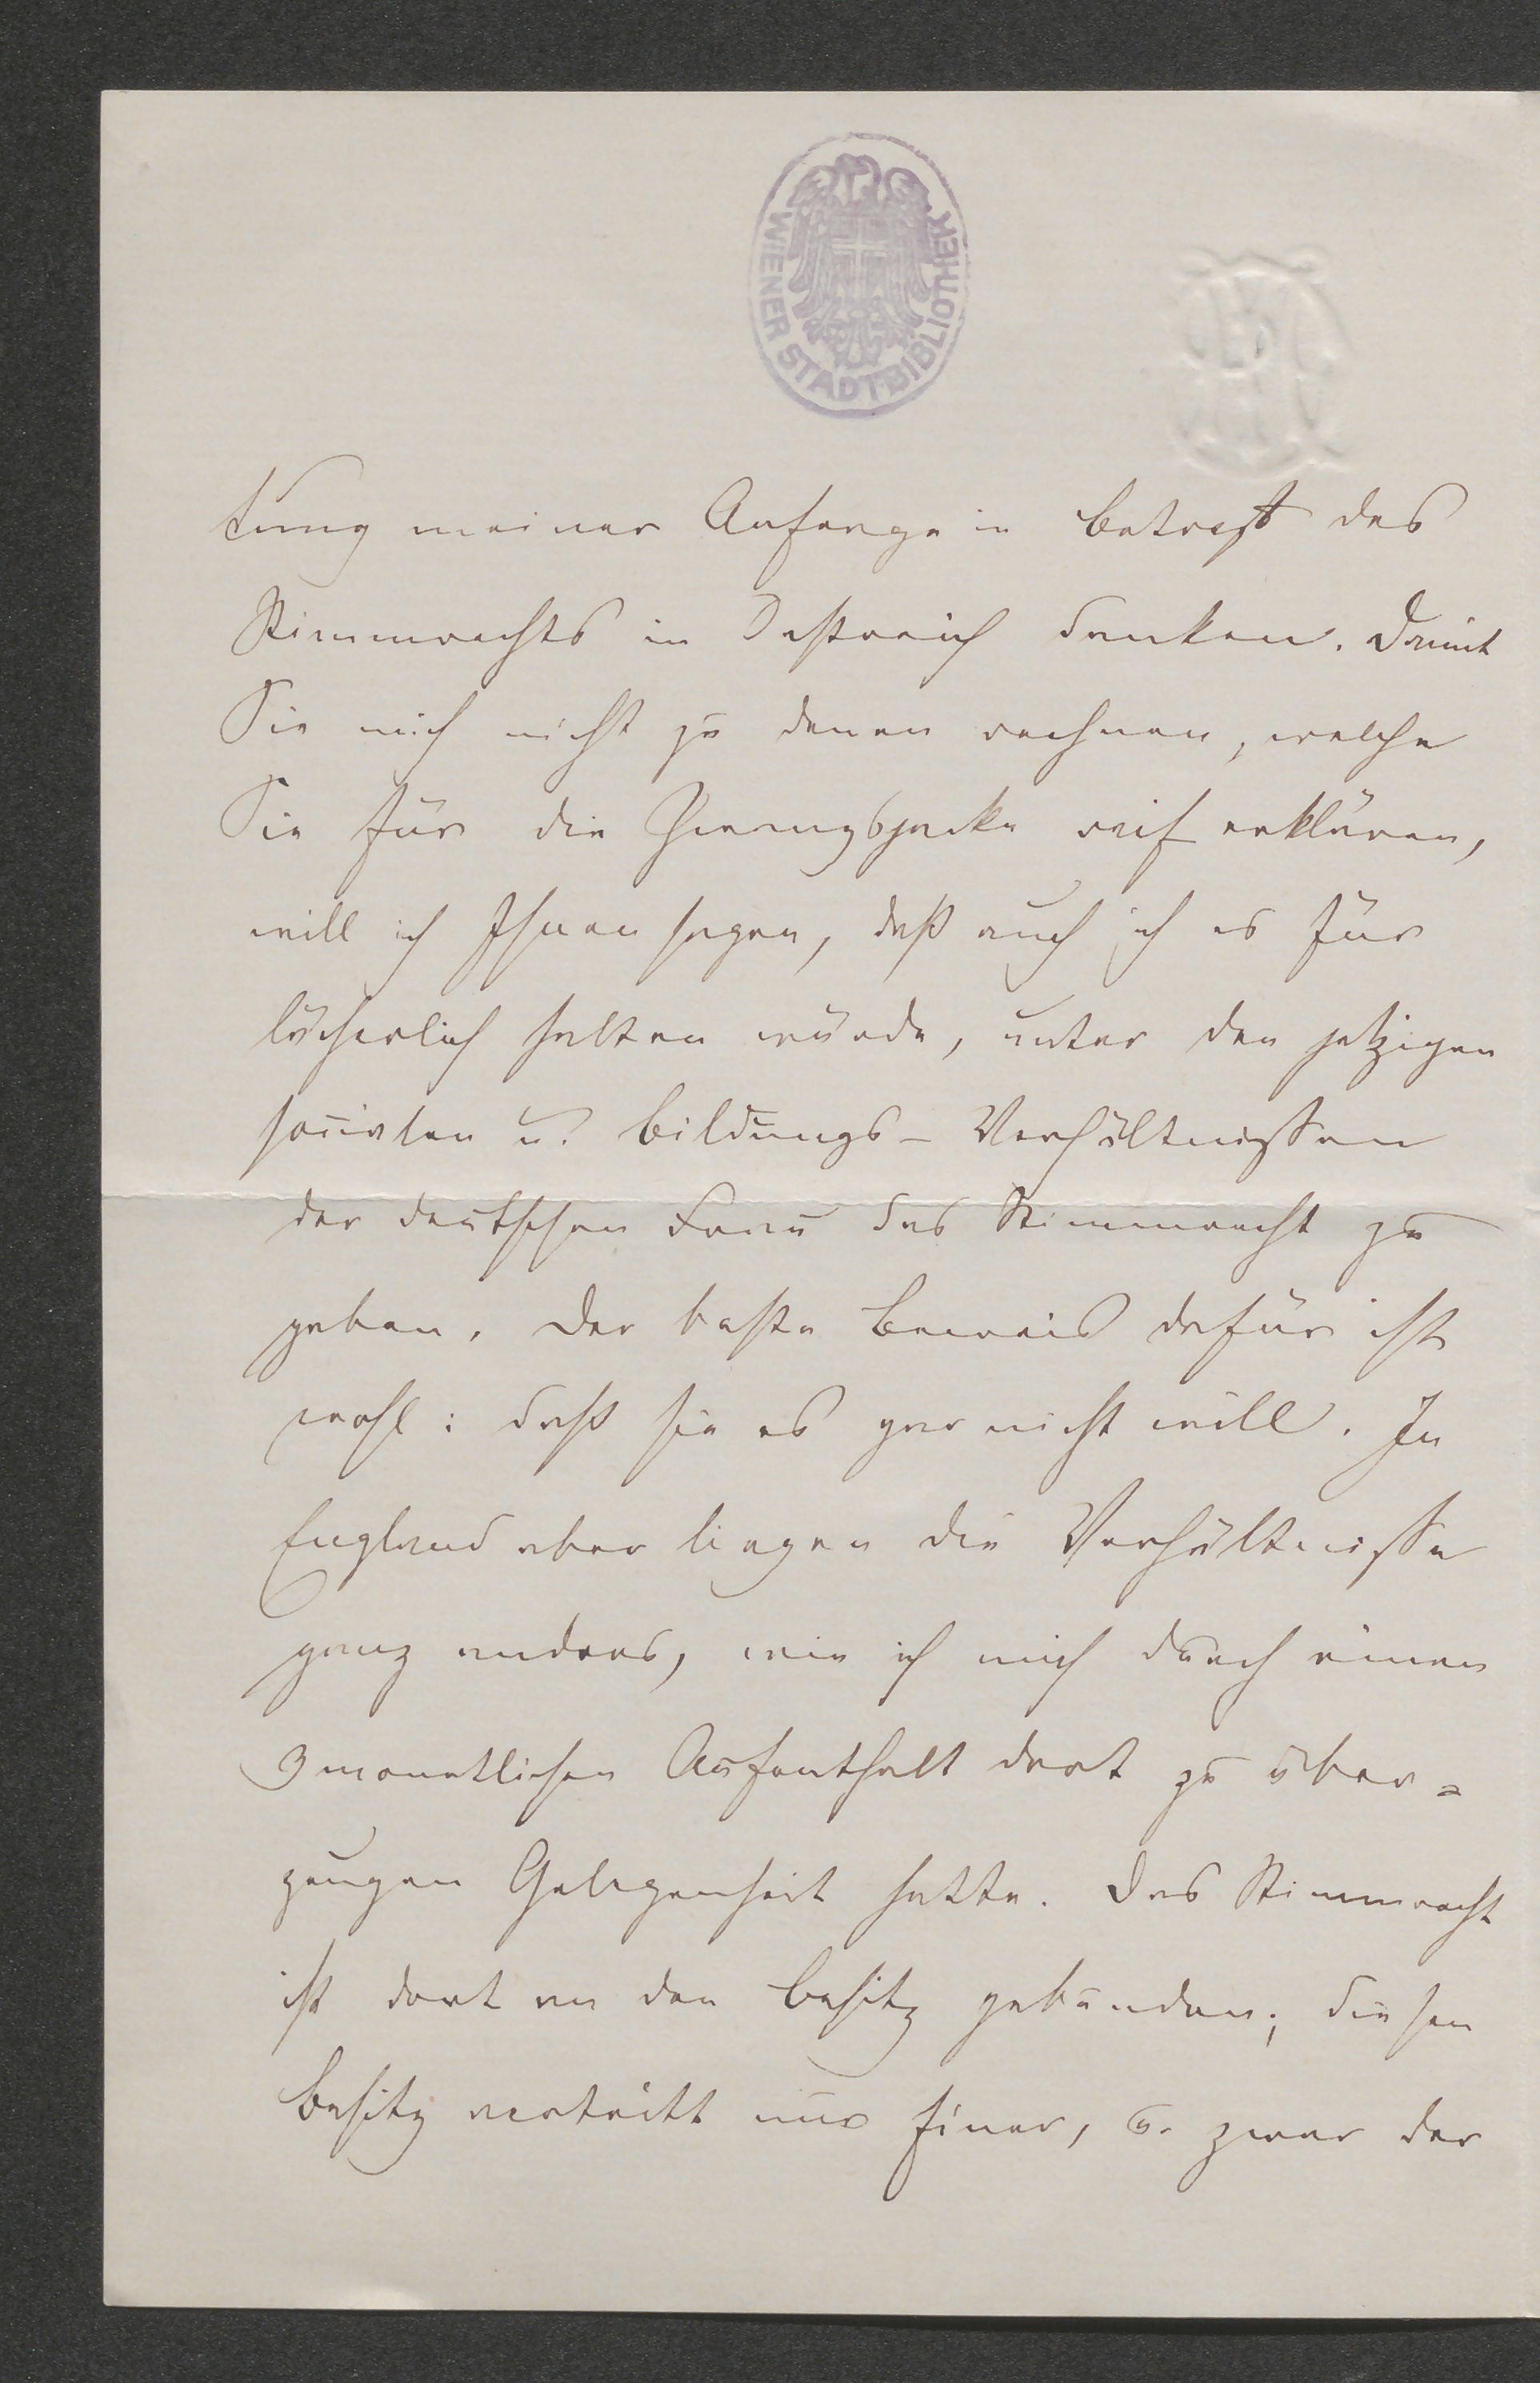 WIENER STADTBIBLIOTHEK
tung meiner Anfrage in betreff des
Stimmrechts in Oestreich danken. Damit
Sie mich nicht zu denen rechnen, welche
Sie für die Zwangsjacke reif erklären,
will ich Ihnen sagen, daß auch ich es für
lächerlich halten würde, unter den jetzigen
socialen u. Bildungs-Verhältnissen
der deutschen Frau das Stimmrecht zu
geben. Der beste Beweis dafür ist
wohl: daß sie es gar nicht will. In
England aber liegen die Verhältnisse
ganz anders, wie ich mich durch einen
9monatlichen Aufenthalt dort zu über=
zeugen Gelegenheit hatte. Das Stimmrecht
ist dort an den Besitz gebunden; diesen
Besitz vertritt nur Einer, u. zwar der